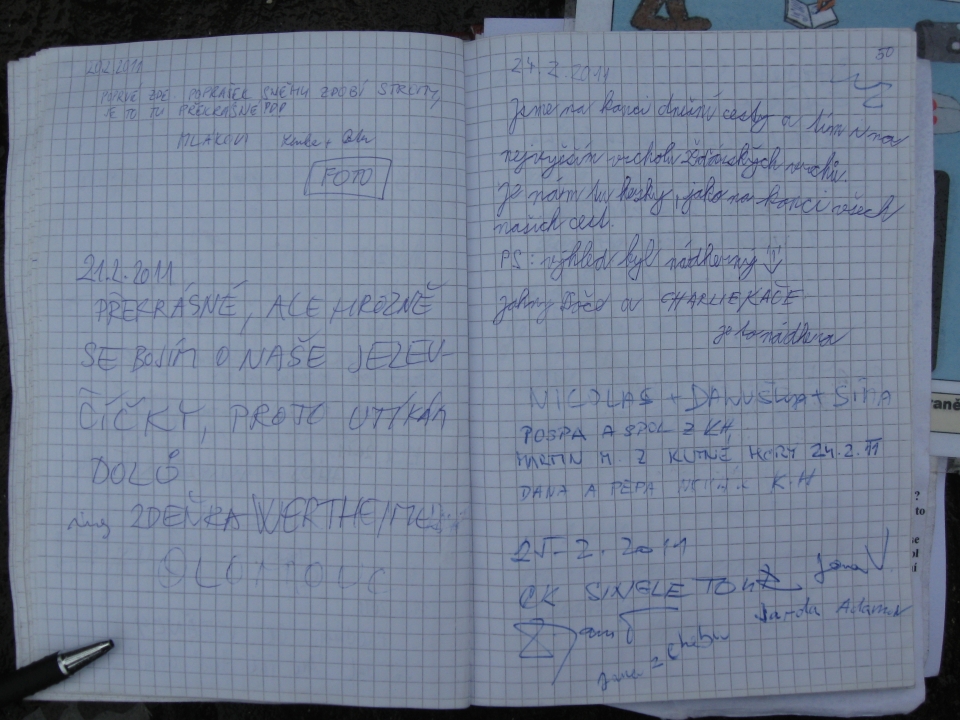 20.2.2011
POPRVÉ ZDE. POPRAŠEK SNĚHU ZDOBÍ STROMY,
JE TO TU PŘEKRÁSNÉ
MLAKOVI
FOTO
21.2.2011
PŘEKRÁSNÉ, ALE HROZNĚ
SE BOJÍM O NAŠE JEZEV-
ČÍČKY, PROTO UTÍKÁM
DOLŮ
ing ZDEŇKA WERTHEIMER
OLOMOUC
50
24.2.2011
Jsme na konci dnešní cesty a tím i na
nejvyšším vrcholu Žďárských vrchů.
Je nám tu hezky, jako na konci všech
našich cest.
PS: výhled byl nádherný
a CHARLIE KAČE
je to nádhera
NICOLAS + DANUŠKA + SIMA
POSPA A SPOL Z KH
MARTIN M. Z KUTNÉ HORY 24.2.11
DANA A PEPA K.H
25.2.2011
CK SINGLETOUR
Jana V
Adamov
Jana z
raně
?
to
ne
ol
ní